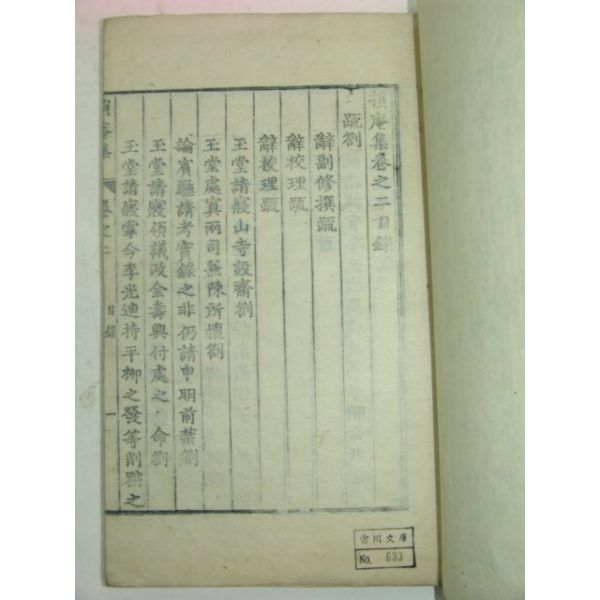 損庵集卷之二目錄
疏劄
辭副修撰疏
辭校理疏
辭校理疏
玉堂請寢山寺設齋劄
玉堂處寘兩司兼陳所懷劄
論賓廳請考實錄之非仍請申明前禁劄
玉堂請寢領議政金壽興付處之命劄
玉堂請寢掌令李光迪持平柳之發等削黜之
損庵集 卷之二 目錄 一
雲川文庫
No. 693